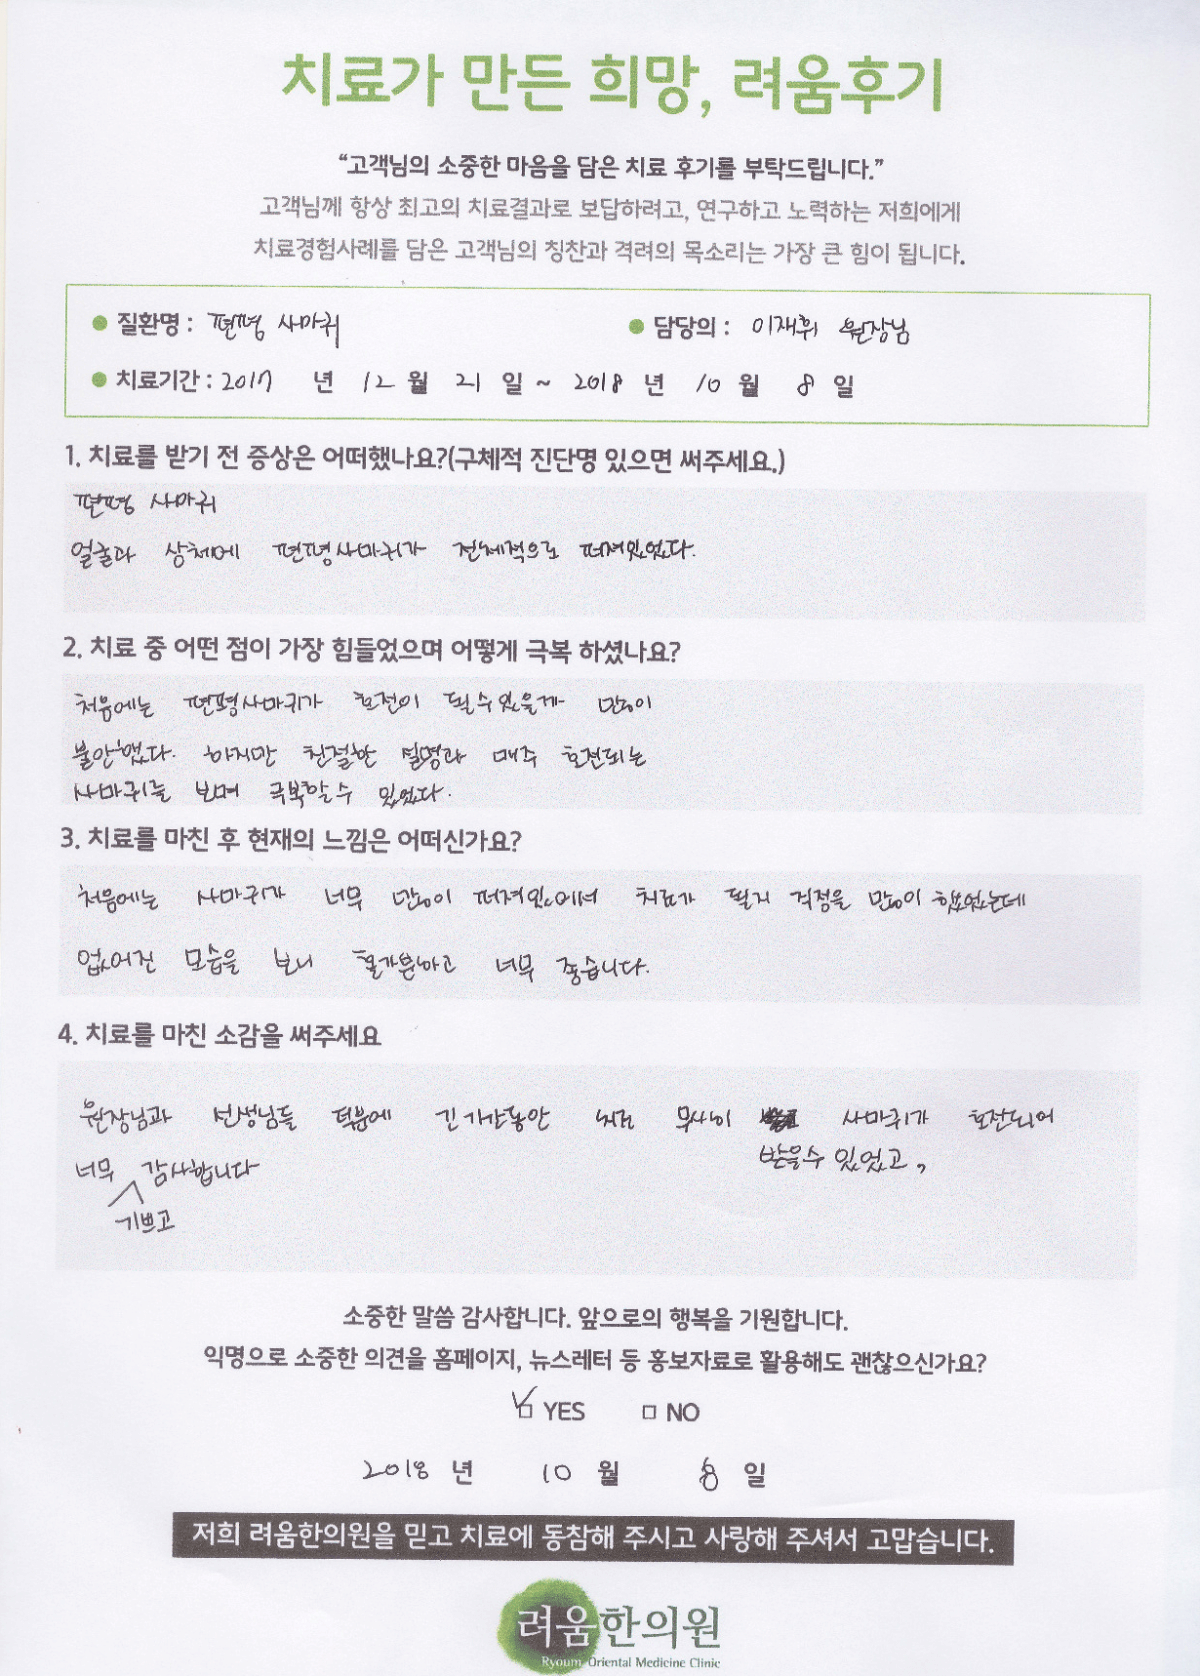 치료가 만든 희망, 려움후기
“고객님의 소중한 마음을 담은 치료 후기를 부탁드립니다.”
고객님께 항상 최고의 치료결과로 보답하려고, 연구하고 노력하는 저희에게
치료경험사례를 담은 고객님의 칭찬과 격려의 목소리는 가장 큰 힘이 됩니다.
질환명 : 편평 사마귀
담당의 : 이재휘 원장님
치료기간 : 2017 년 12 월 21 일 ~ 2018 년 10 월 8 일
1. 치료를 받기 전 증상은 어떠했나요?(구체적 진단명 있으면 써주세요.)
편평 사마귀
얼굴과 상체에 편평사마귀가 전체적으로 퍼져있었다.
2. 치료 중 어떤 점이 가장 힘들었으며 어떻게 극복 하셨나요?
처음에는 편평사마귀가 호전이 될수있을까 많이
불안했다. 하지만 친절한 설명과 매주 호전되는
사마귀를 보며 극복할수 있었다.
3. 치료를 마친 후 현재의 느낌은 어떠신가요?
처음에는 사마귀가 너무 많이 퍼져있어서 치료가 될지 걱정을 많이 했었는데
없어진 모습을 보니 홀가분하고 너무 좋습니다.
4. 치료를 마친 소감을 써주세요
원장님과 선생님들 덕분에 긴기간동안 치료 무사히 사마귀가 호전되어
받을수 있었고,
너무 감사합니다
기쁘고
소중한 말씀 감사합니다. 앞으로의 행복을 기원합니다.
익명으로 소중한 의견을 홈페이지, 뉴스레터 등 홍보자료로 활용해도 괜찮으신가요?
YES NO
2018 년 10 월 8 일
저희 려움한의원을 믿고 치료에 동참해 주시고 사랑해 주셔서 고맙습니다.
려움한의원
Ryoum Oriental Medicine Clinic